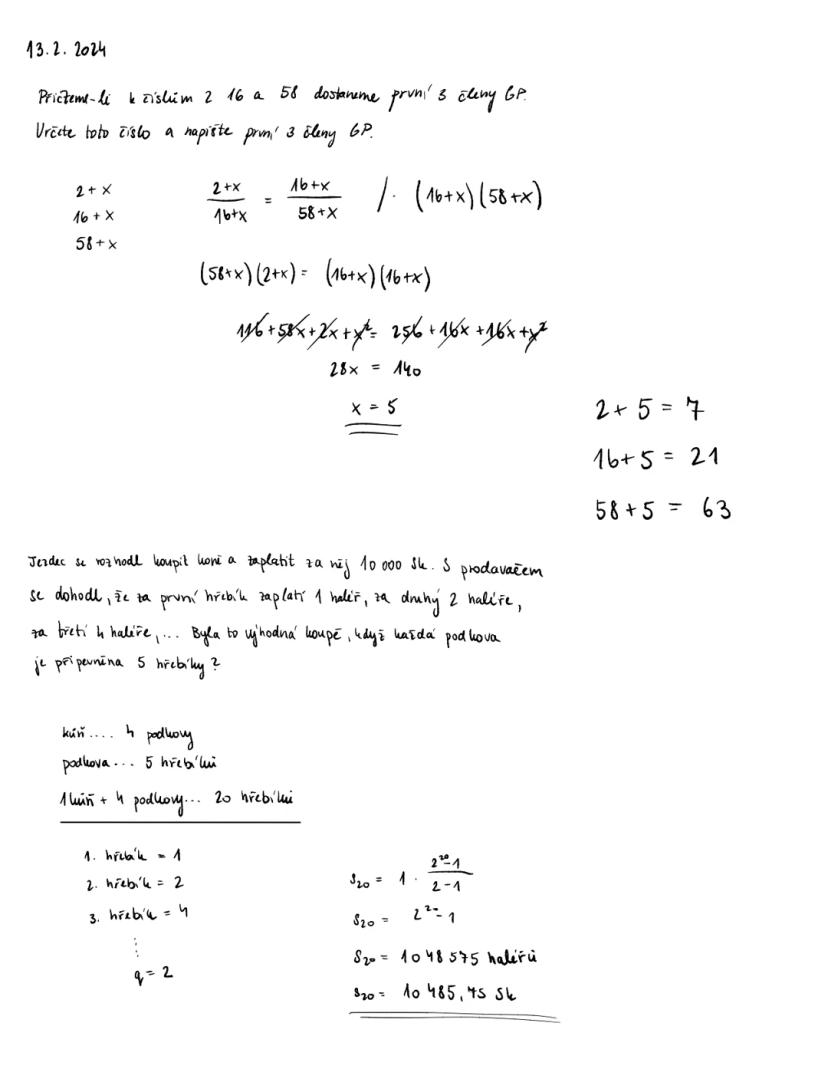 13.2.2024
Přičteme-li k číslům 2 16 a 58 dostaneme první 3 členy GP.
Určete toto číslo a napište první 3 členy GP.
2 + x
16 + x
58 + x
(2+x)/(16+x) = (16+x)/(58+x) /· (16+x)(58+x)
(58+x)(2+x) = (16+x)(16+x)
116 + 58x + 2x + x² = 256 + 16x + 16x + x²
28x = 140
x = 5
2 + 5 = 7
16 + 5 = 21
58 + 5 = 63
Jezdec se rozhodl koupit koně a zaplatit za něj 10 000 Sk. S prodavačem
se dohodl, že za první hřebík zaplatí 1 haléř, za druhý 2 haléře,
za třetí 4 haléře, ... Byla to výhodná koupě, když každá podkova
je připevněna 5 hřebíky?
kůň .... 4 podkovy
podkova ... 5 hřebíků
1 kůň + 4 podkovy ... 20 hřebíků
1. hřebík = 1
2. hřebík = 2
3. hřebík = 4
⋮
q = 2
s₂₀ = 1 · (2²⁰-1)/(2-1)
s₂₀ = 2²⁰-1
s₂₀ = 1 048 575 haléřů
s₂₀ = 10 485,75 Sk